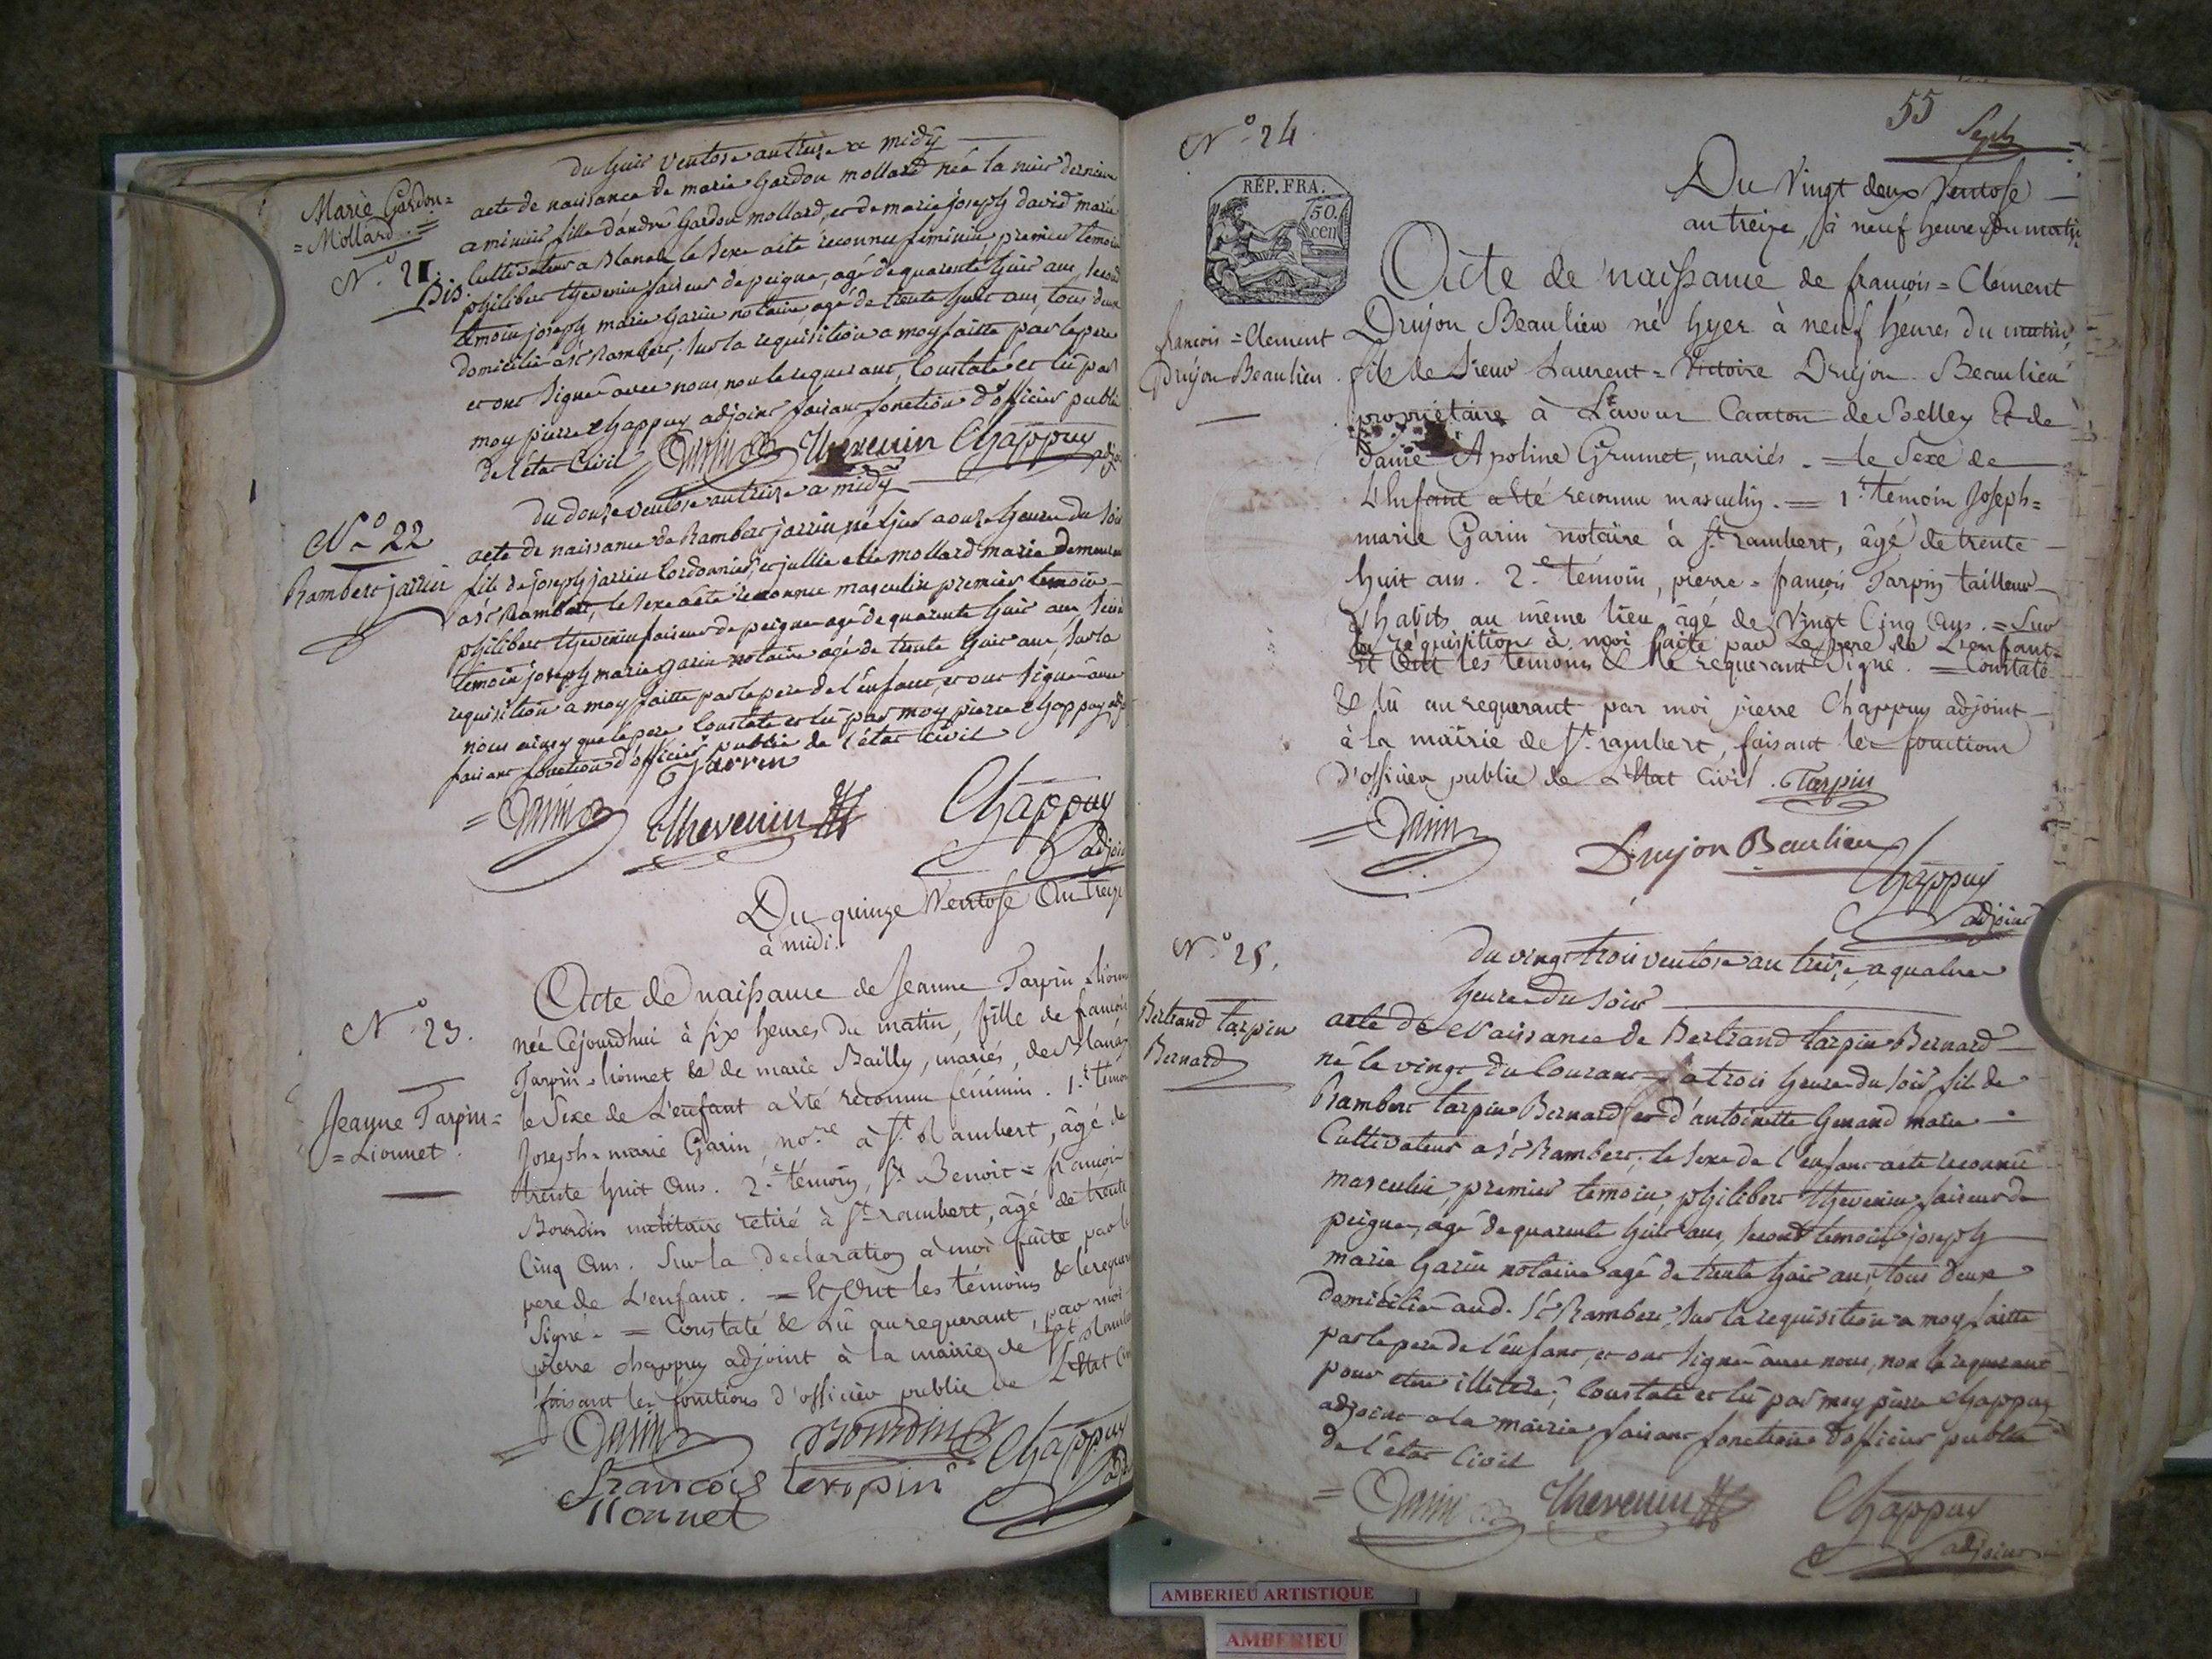 Marie Gardon=
=Mollard. =
N° 21.
bis.
du huit ventose an treize a midy
acte de naissance de marie Gardon mollard née la nuit derniere
a minuit fille d'andré Gardon mollard, et de marie joseph david marié
cultivateur a Blanas le sexe a été reconnu feminin, premier temoin
philibert thevenin faiseur de peigne, agé de quarente huit ans, second
temoin joseph marie Garin notaire agé de trente huit ans, tous deux
domicilié a st Rambert, sur la requisition a moy faitte par le pere
et ont signé avec nous, non le requerant, Constaté et lu par
moy pierre Chappuy adjoint faisant fonction d'officier public
de l'état Civil Garin Thevenin Chappuy
adjoi
N° 22
Rambert jarrin
du douze ventose an treize a midy
acte de naissance de Rambert jarrin né hier a onze heure du soir
fils de joseph jarrin Cordonnier, et jullie mollard marié demeurant
a st Rambert, le sexe a été reconnu masculin premier temoin
philibert thevenin faiseur de peigne agé de quarente huit ans, second
temoin joseph marie Garin notaire agé de trente huit ans, sur la
requisition a moy faitte par le pere de l'enfant, et ont signé avec
nous ainsy que le pere Constaté et lu par moy pierre Chappuy adjt
faisant fonction d'officier public de l'état Civil
Jarrin
= Garin Thevenin Chappuy
adjoi
Du quinze Ventose An treize
à midi.
N° 23.
Jeanne Tarpin=
=Lionnet.
Acte de naissance de Jeanne Tarpin=Lionn
née Cejourdhui à six heures du matin, fille de francois
Tarpin=lionnet & de marie Bailly, mariés, de Blanas
le Sexe de L'enfant a été reconnu féminin. 1.r témoin
Joseph=marie Garin, no.re à St. Rambert, âgé de
trente huit Ans. 2.e témoin, St. Benoit=francois
Bourdin militaire retiré à St. rambert, âgé de trente
Cinq Ans. Sur la declaration à moi faite par le
pere de L'enfant. = Et Ont les témoins & le requer
Signé. = Constaté & Lû au requerant, par moi
pierre chappuy adjoint à la mairie de St. Rambe
faisant les fonctions d'officier public de L'Etat Civ
= Garin Bourdin Chappuy
adj
francois terpin
lionnet
N° 24
55
Septs
RÉP. FRA.
50.
cen
Du Vingt deux Ventose
an treize, à neuf heures du matin
francois=Clement
Drujon Beaulieu.
Acte de naissance de francois=Clément
Drujon Beaulieu né hyer à neuf heures du matin,
fils de Sieur Laurent=Victoire Drujon Beaulieu
propriétaire à Lavour Canton de Belley Et de
Dame Apoline Grumet, mariés. = le Sexe de
L'Enfant a été reconnu masculin. = 1.r témoin Joseph=
marie Garin notaire à St. rambert, âgé de trente
huit ans. 2.e témoin, pierre=francois Tarpin tailleur
d'habits au même lieu âgé de Vingt Cinq Ans. = Sur
la réquisition à moi faite par Le Pere de L'enfant=
Et Ont les témoins & le requerant Signé. = Constaté
& lû au requerant par moi pierre Chappuy adjoint
à la mairie de St. rambert, faisant les fonctions
d'officier public de L'Etat Civil. Tarpin
= Garin
Drujon Beaulieu
Chappuy
adjoint
N° 25.
Bertrand tarpin
Bernard
du vingt trois ventose an treize, a quatre
heure du soir
acte de Naissance de Bertrand tarpin Bernard
né le vingt du Courant a trois heure du soir fils de
Rambert tarpin Bernard et d'antoinette Genand marié
Cultivateur a st Rambert, le sexe de l'enfant a été reconnu
masculin, premier temoin philibert thevenin faiseur de
peigne, agé de quarente huit ans, second temoin joseph
marie Garin notaire agé de trente huit ans, tous deux
domicilié aud. st Rambert, sur la requisition a moy faitte
par le pere de l'enfant, et ont signé avec nous, non le requerant
pour etre illitéré, Constaté et lu par moy pierre Chappuy
adjoint a la mairie faisant fonction d'officier public
de l'état Civil
= Garin Thevenin Chappuy
adjoint
AMBERIEU ARTISTIQUE
AMBERIEU